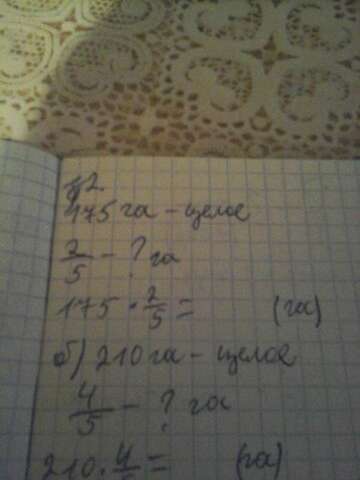 №2
175 га – целое
2/5 – ? га
175 · 2/5 = (га)
б) 210 га – целое
4/5 – ? га
210 · 4/5 = (га)